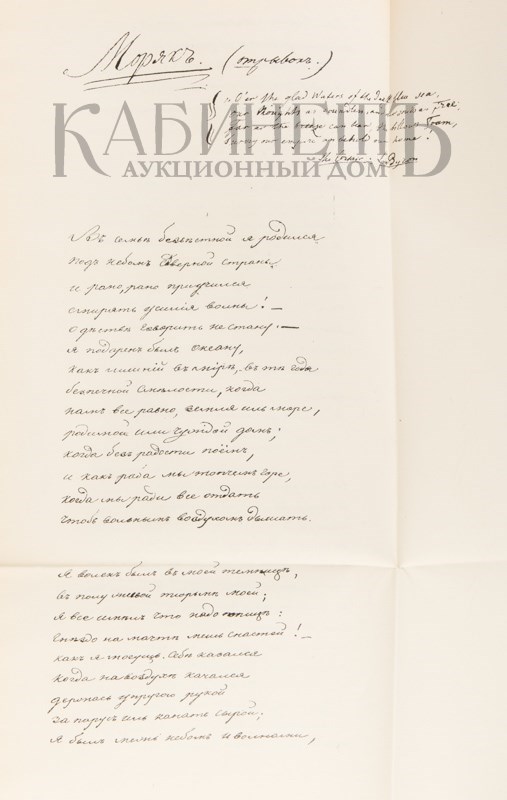 Морякъ. (отрывокъ.)
„O'er the glad waters of the dark blue sea,
our thoughts as boundless and our souls as free,
far as the breeze can bear, the billows foam,
survey our empire and behold our home."
The Corsair. L. Byron
КАБИНЕТЪ
АУКЦИОННЫЙ ДОМ
Въ семьѣ безвѣстной я родился
подъ небомъ сѣверной страны
и рано, рано приучился
смирять усилія волны! —
О дѣтствѣ говорить не стану. —
я подаренъ былъ океану,
какъ лишній въ мірѣ, въ тѣ года
безпечной смѣлости, когда
намъ все равно, земля иль море,
родимой или чужой домъ;
когда безъ радости поёмъ,
и какъ раба мы топчемъ горе,
когда мы ради все отдать
чтобъ вольнымъ воздухомъ дышать.
Я воленъ былъ въ моей темницѣ,
въ полуживой тюрьмѣ моей;
я все имѣлъ что надо птицѣ:
Гнѣздо на мачтѣ межъ снастей! —
какъ я могущъ себѣ казался
когда на воздухѣ качался
держась упругою рукой
за парусъ иль канатъ сырой;
я былъ межъ небомъ и волнами,